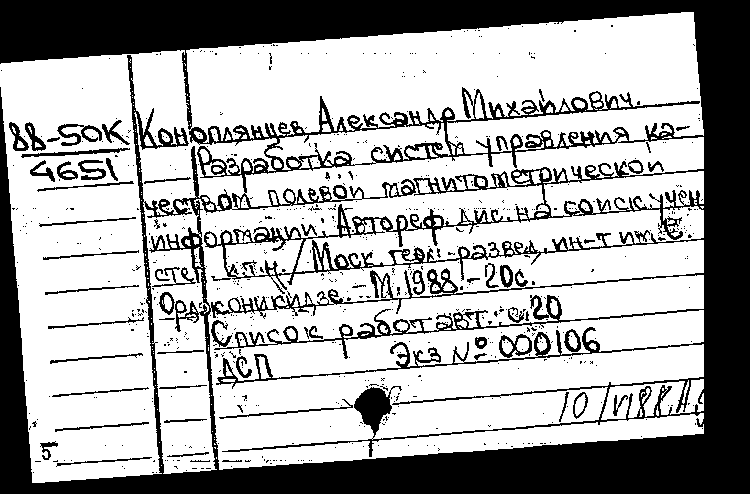 88-50К Коноплянцев, Александр Михайлович.
4651 Разработка систем управления ка-
чеством полевой магнитометрической
информации: Автореф. дис. на соиск. учен.
степ. к.т.н. / Моск. геол.-развед. ин-т им. С.
Орджоникидзе. - М., 1988. - 20с.
Список работ авт.: с. 20
ДСП Экз № 000106
10/VI88.
5